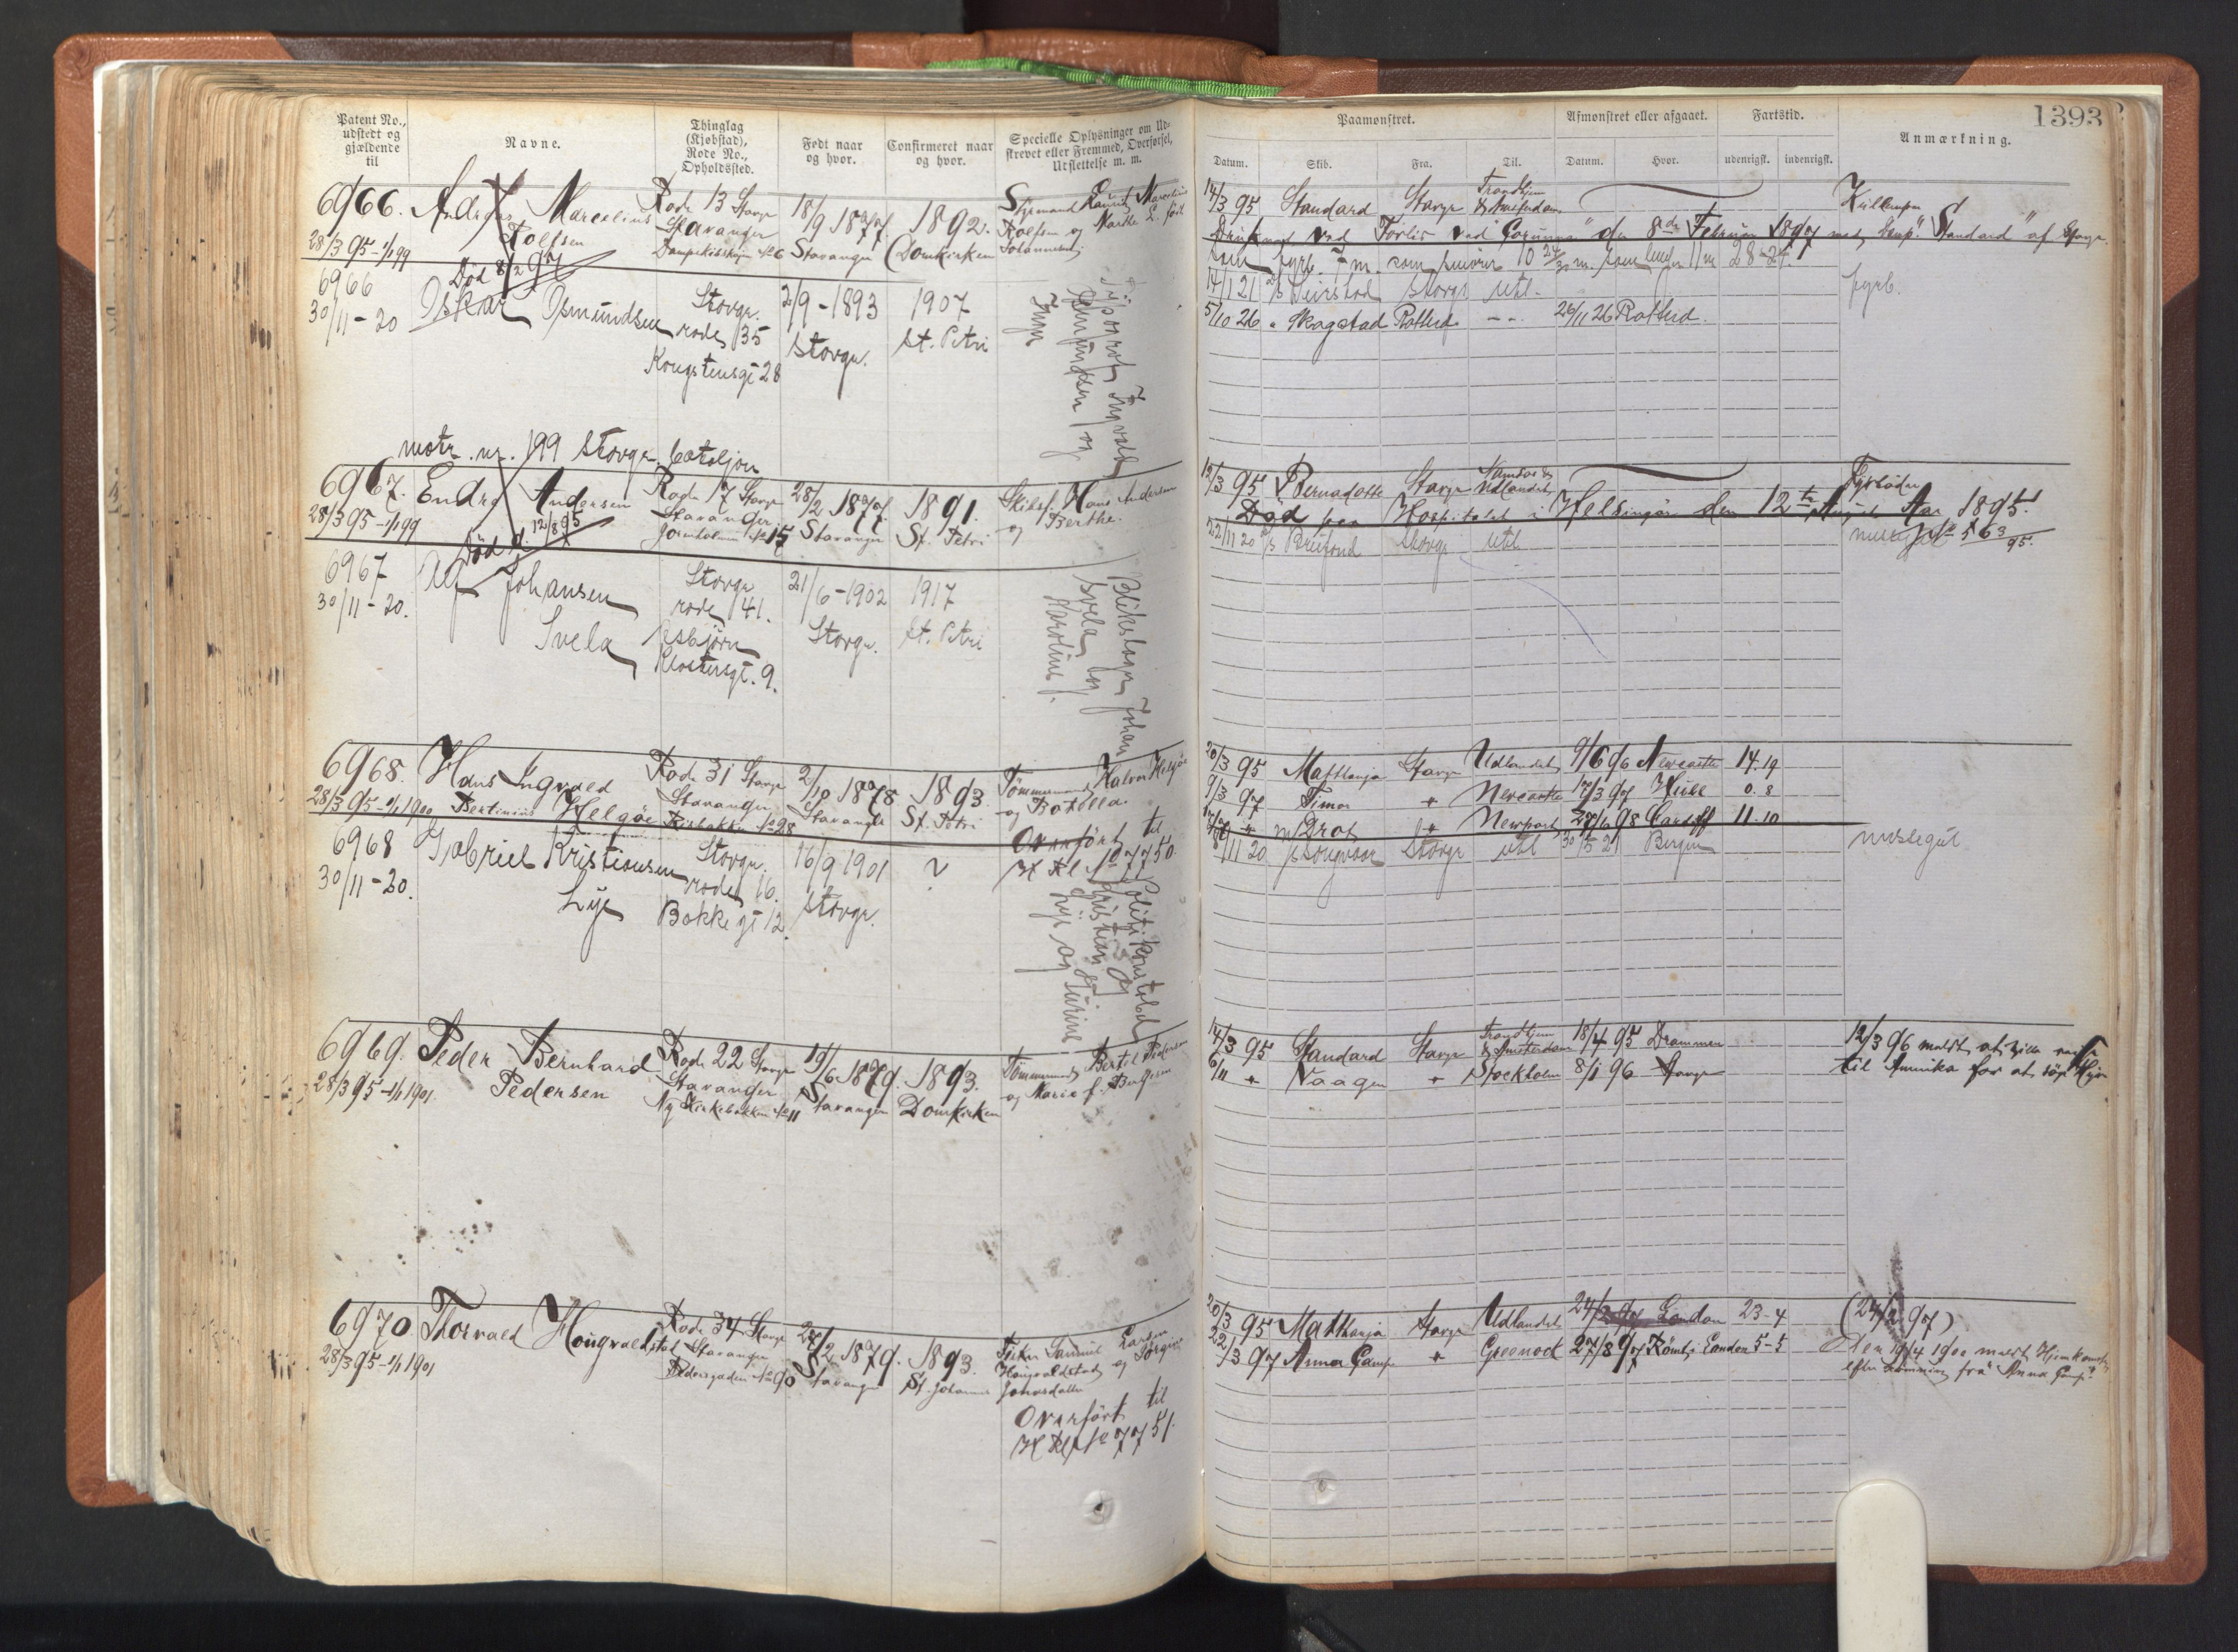 Patent No., udstedt og gjældende til
Navne.
Thinglag (Kjøbstad), Rode No., Opholdssted.
Født naar og hvor.
Confirmeret naar og hvor.
Specielle Oplysninger om Udskrevet eller Fremmed, Overførsel, Udslettelse m. m.
6966.
28/3 95 - 1/1 99
Marcelius
Rolfsen
Død 8/2 97
Rode 13 Stavgr
Stavanger
18/9 1877
Stavanger
1892.
Domkirken
Styrmand Laurits Marcelius
Rolfsen og
6966
30/11 - 20
Oskar Osmundsen
Stavgr.
rode 135
Kongstensgt 28
2/9 - 1893
Stavgr.
1907
St. Petri
matr. nr. 199 Stavgr.
6967.
28/3 95 - 1/1 99
Endre Andersen
død d. 12/8 95
Rode 17 Stavgr
Stavanger
28/2 1877
Stavanger
1891.
St. Petri
Hans Andersen
og Berthe.
6967
30/11 - 20.
Alf Johansen
Svela
Stavgr
rode 141.
Klostergt. 9.
21/6 - 1902
Stavgr.
1917
St. Petri
Blikslager Johan
Svela og
Karoline f.
6968.
28/3 95 - 1/1 1900
Hans Ingvald
Bertinius Helgøe
Rode 31 Stavgr
Stavanger
2/10 1878
Stavanger
1893.
St. Petri
Tømmermand Halvor Helgøe
og Botilla.
Overført til
H Rl No 7750
6968
30/11 - 20.
Gabriel Kristiansen
Lye
Stavgr.
rode 16.
Bakkegt 12.
16/9 1901
Stavgr.
?
Politikonstabel
Kristian G
Lye og Turine
6969.
28/3 95 - 1/1 1901.
Peder Bernhard
Pedersen
Rode 22 Stavgr
Stavanger
Ny Kirkebakken No 11
19/6 1879.
Stavanger
1893.
Domkirken
Tømmermand Bertil Pedersen
og Marie f.
6970
28/3 95 - 1/1 1901
Thorvald Hougvaldstad
Rode 34 Stavgr
Stavanger
Pedersgaden No 90
1879.
Stavanger
1893.
St. Johannes
Fisker Samuel Larsen
Hougvaldstad og Jørgine
Jonasdatter
Overført til
H Rl No 7751.
Paamønstret.
Afmønstret eller afgaaet.
Fartstid.
Anmærkning.
1393
Datum.
Skib.
Fra.
Til.
Datum.
Hvor.
udenrigsk.
indenrigsk.
14/3 95 Standard Stavgr Trondhjem & Amsterdam
Druknet ved Forlis ved Corunna den 8de Februar 1897 med Dmp. "Standard" af Stavgr.
14/1 21
Stavgr Utl.
fyrb.
5/10 26 " Skagstad Rotterd. - - 26/11 26 Rotterd.
12/3 95 Bernadotte Stavgr Udlandet
Fyrbøder
Død paa Hospitalet i Helsingør den 12te August Aar 1895.
22/11 20 Breifond Stavgr Utl
20/3 95 Matthanja Stavgr Udlandet 9/6 96 Newcastle 14.19
9/3 97 Timor " Newcastle 17/3 97 Hull 0.8
Drot " Newport 98 Cardiff 11-10
11 20 Songvaar Stavgr Utl 30/5 21 Bergen
messegut
14/3 95 Standard Stavgr Trondhjem & Amsterdam 18/4 95 Drammen
6/11 " Vaagen " Stockholm 8/1 96 Stavgr
12/3 96 meldt at ville reise
til Amerika for at søge Hyre
20/3 95 Matthanja Stavgr Udlandet 24/2 97 London 23-4
22/3 97 Anna Camp " Greenock 27/8 97 Rømt i London 5-5
(24/2 97)
Den 19/4 1900 meldt Hjemkomst
efter rømning fra "Anna Camp"